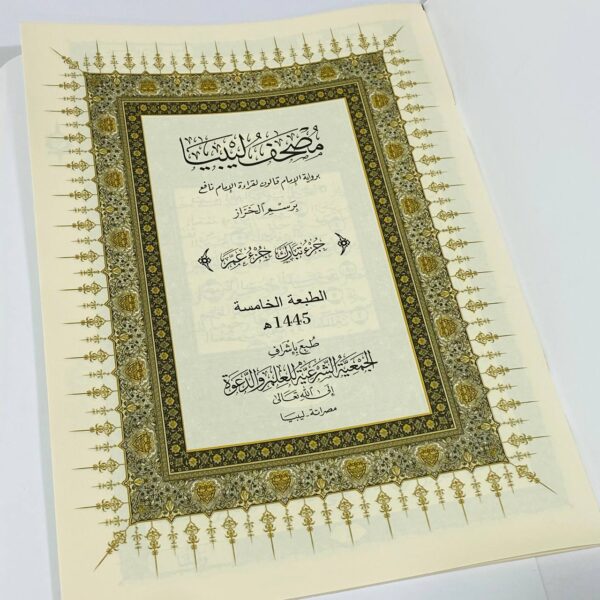 مُصْحَفُ لِيبْيَا
برواية الإمام قالون لقراءة الإمام نافع
بِرَسْمِ الخَرَّازِ
﴿ جُزْءُ تَبَارَكَ جُزْءُ عَمَّ ﴾
الطبعة الخامسة
1445 هـ
طُبِعَ بِإِشْرَافِ
الجَمْعِيَّةُ الشَّرْعِيَّةُ لِلْعِلْمِ وَالدَّعْوَةِ
إِلَى اللهِ تَعَالَى
مصراتة - ليبيا